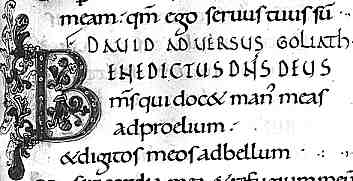 meam: qm̄ ego seruus tuus sū
DAVID ADVERSUS GOLIATH
BENEDICTUS DN̄S DEUS
m̄s qui doc& man' meas
ad proelium·
& digitos meos ad bellum